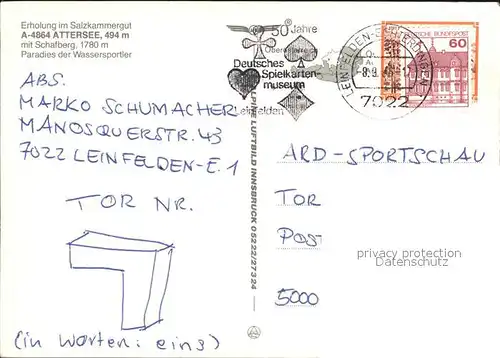 Erholung im Salzkammergut
A-4864 ATTERSEE, 494 m
mit Schafberg, 1780 m
Paradies der Wassersportler
50 Jahre
Deutsches
Spielkarten-
museum
Leinfelden
LEINFELDEN-ECHTERDINGEN
7022
60
ABS.
MARKO SCHUMACHER
MANOSQUERSTR. 43
7022 LEINFELDEN-E.1
TOR NR.
1
(in Worten: eins)
ALPINE LUFTBILD INNSBRUCK 05222/27324
ARD-SPORTSCHAU
TOR
POST
5000
privacy protection
Datenschutz